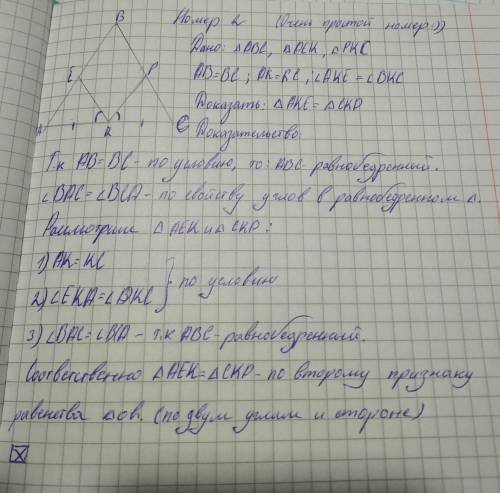 B
Номер 2 (Очень простой номер:))
Дано: △ABC, △AEK, △PKC
E P
AB=BC; AK=KC, ∠AKE=∠DKC
Доказать: △AKE=△CKP
A K C
Доказательство:
Т.к AB=BC - по условию, то: ABC-равнобедренный.
∠BAC=∠BCA - по свойству углов в равнобедренном △.
Рассмотрим △AEK и △CKP:
1) AK=KC
2) ∠EKA=∠DKC } по условию
3) ∠BAC=∠BCA - т.к ABC-равнобедренный.
Соответственно △AEK=△CKP - по второму признаку
равенства △ов. (по двум углам и стороне)